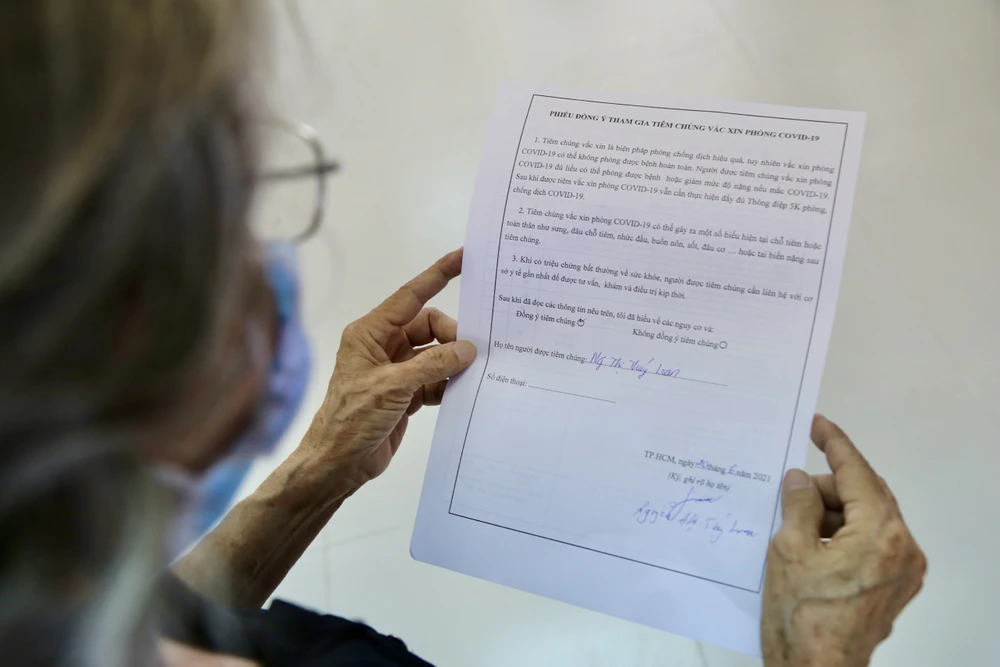 PHIẾU ĐỒNG Ý THAM GIA TIÊM CHỦNG VẮC XIN PHÒNG COVID-19
1. Tiêm chủng vắc xin là biện pháp phòng chống dịch hiệu quả, tuy nhiên vắc xin phòng
COVID-19 có thể không phòng được bệnh hoàn toàn. Người được tiêm chủng vắc xin phòng
COVID-19 đủ liều có thể phòng được bệnh hoặc giảm mức độ nặng nếu mắc COVID-19.
Sau khi được tiêm vắc xin phòng COVID-19 vẫn cần thực hiện đầy đủ Thông điệp 5K phòng,
chống dịch COVID-19.
2. Tiêm chủng vắc xin phòng COVID-19 có thể gây ra một số biểu hiện tại chỗ tiêm hoặc
toàn thân như sưng, đau chỗ tiêm, nhức đầu, buồn nôn, sốt, đau cơ .... hoặc tai biến nặng sau
tiêm chủng.
3. Khi có triệu chứng bất thường về sức khỏe, người được tiêm chủng cần liên hệ với cơ
sở y tế gần nhất để được tư vấn, khám và điều trị kịp thời.
Sau khi đã đọc các thông tin nêu trên, tôi đã hiểu về các nguy cơ và:
Đồng ý tiêm chủng Không đồng ý tiêm chủng
Họ tên người được tiêm chủng: Ng Thị Tuý Loan
Số điện thoại:
TP.HCM, ngày 30 tháng 6 năm 2021
(Ký, ghi rõ họ tên)
Nguyễn Thị Tuý Loan